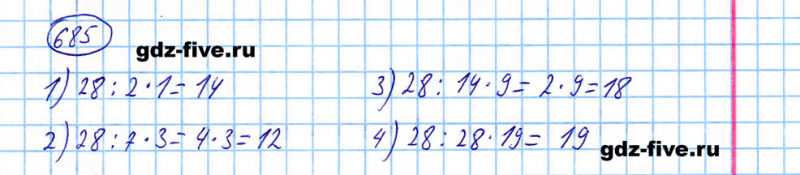 685
gdz-five.ru
1) 28 : 2 · 1 = 14
2) 28 : 7 · 3 = 4 · 3 = 12
3) 28 : 14 · 9 = 2 · 9 = 18
4) 28 : 28 · 19 = 19
gdz-five.ru